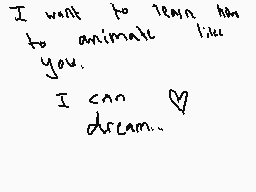 I want to learn how
to animate like
you.
I can ♡
dream..